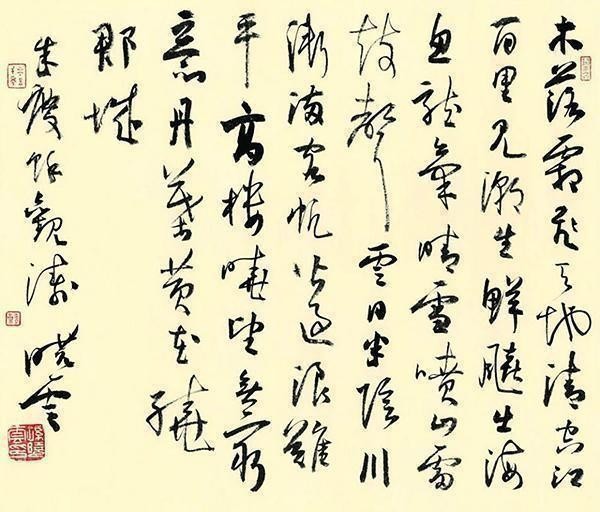 木落霜飛天地清空江
百里見潮生鮮飈出海
魚龍氣晴雪噴山雷
鼓聲雲日半陰川
漸滿客帆皆過浪難
平高樓曉望無窮
意丹葉黃花繞
郡城
朱慶餘觀濤 曉雲
孫曉雲印